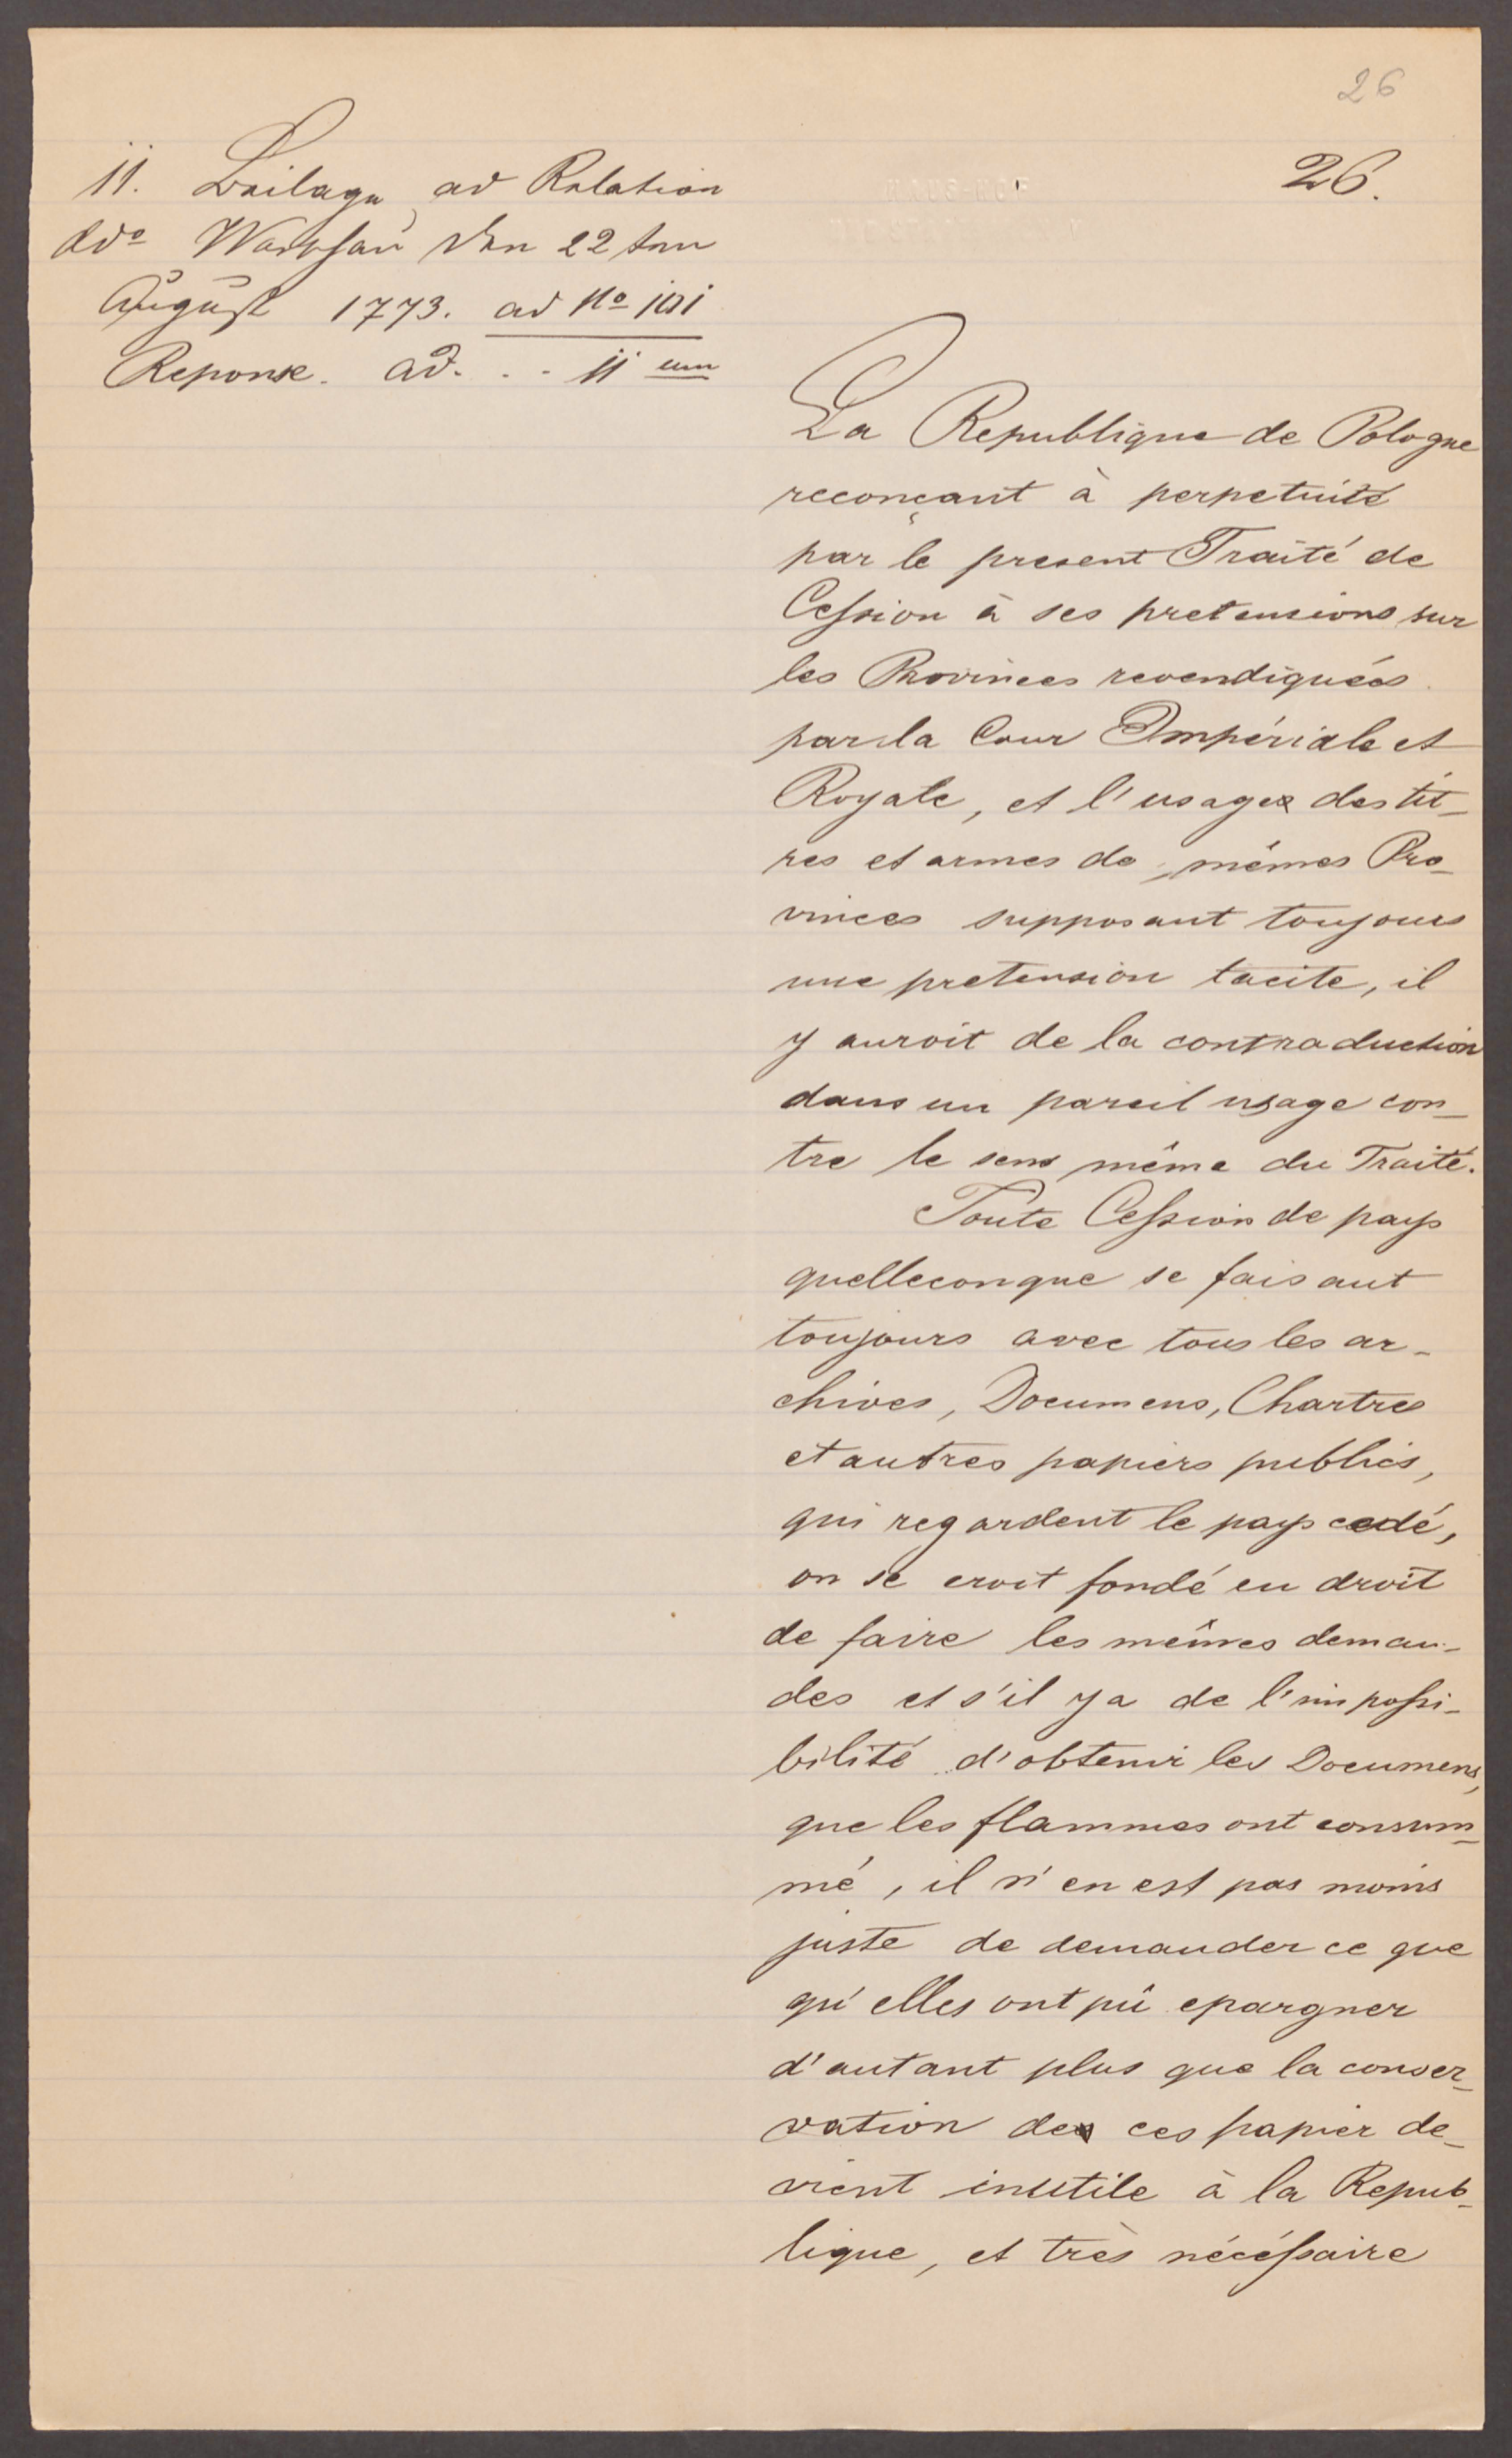 26
26.
11. Beilage ad Relation
ddo Warschau den 22ten
August 1773. ad No 101
Reponse. ad. . . 11 um
La Republique de Pologne
reconçant à perpetuité
par le present Traité de
Cession à ses pretensions sur
les Provinces revendiquées
par la Cour Impériale et
Royale, et l'usage des tit-
res et armes de mêmes Pro-
vinces supposant toujours
une pretension tacite, il
y auroit de la contraduction
dans un pareil usage con-
tre le sens même du Traité.
Toute Cession de pays
quelleconque se faisant
toujours avec tous les ar-
chives, Documens, Chartres
et autres papiers publics,
qui regardent le pays cedé,
on se croit fondé en droit
de faire les mêmes deman-
des et s'il y a de l'impossi-
bilité d'obtenir les Documens,
que les flammes ont consum-
mé, il n'en est pas moins
juste de demander ce que
qu'elles ont pû epargner
d'autant plus que la conser-
vation de ces papier de-
vient inutile à la Repub-
lique, et très nécéssaire